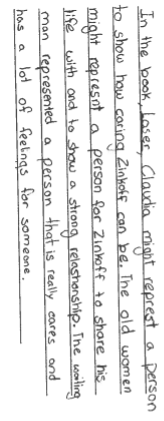 In the book Loser, Claudia might represt a person
to show how caring Zinkoff can be. The old women
might represnt a person for Zinkoff to share his
life with and to show a strong relastonship. The waiting
man represented a person that is really cares and
has a lot of feelings for someone.